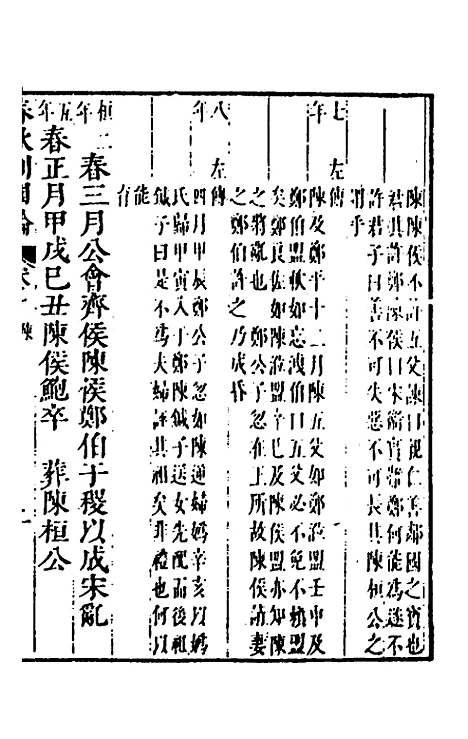 陳陳侯不許五父諫曰親仁善鄰國之寶也
君其許鄭陳侯曰宋衛實難鄭何能爲遂不
許君子曰善不可失惡不可長其陳桓公之
謂乎
七年 左傳
陳及鄭平十二月陳五父如鄭涖盟壬申及
鄭伯盟歃如忘洩伯曰五父必不免不賴盟
矣鄭良佐如陳涖盟辛巳及陳侯盟亦知陳
之將亂也 鄭公子忽在王所故陳侯請妻
之鄭伯許之乃成昏
八年 左傳
四月甲辰鄭公子忽如陳逆婦嬀辛亥以嬀
氏歸甲寅入于鄭陳鍼子送女先配而後祖
鍼子曰是不爲夫婦誣其祖矣非禮也何以
能育
桓二年 春三月公會齊侯陳侯鄭伯于稷以成宋亂
五年 春正月甲戌己丑陳侯鮑卒 葬陳桓公
春秋列國論 卷 陳